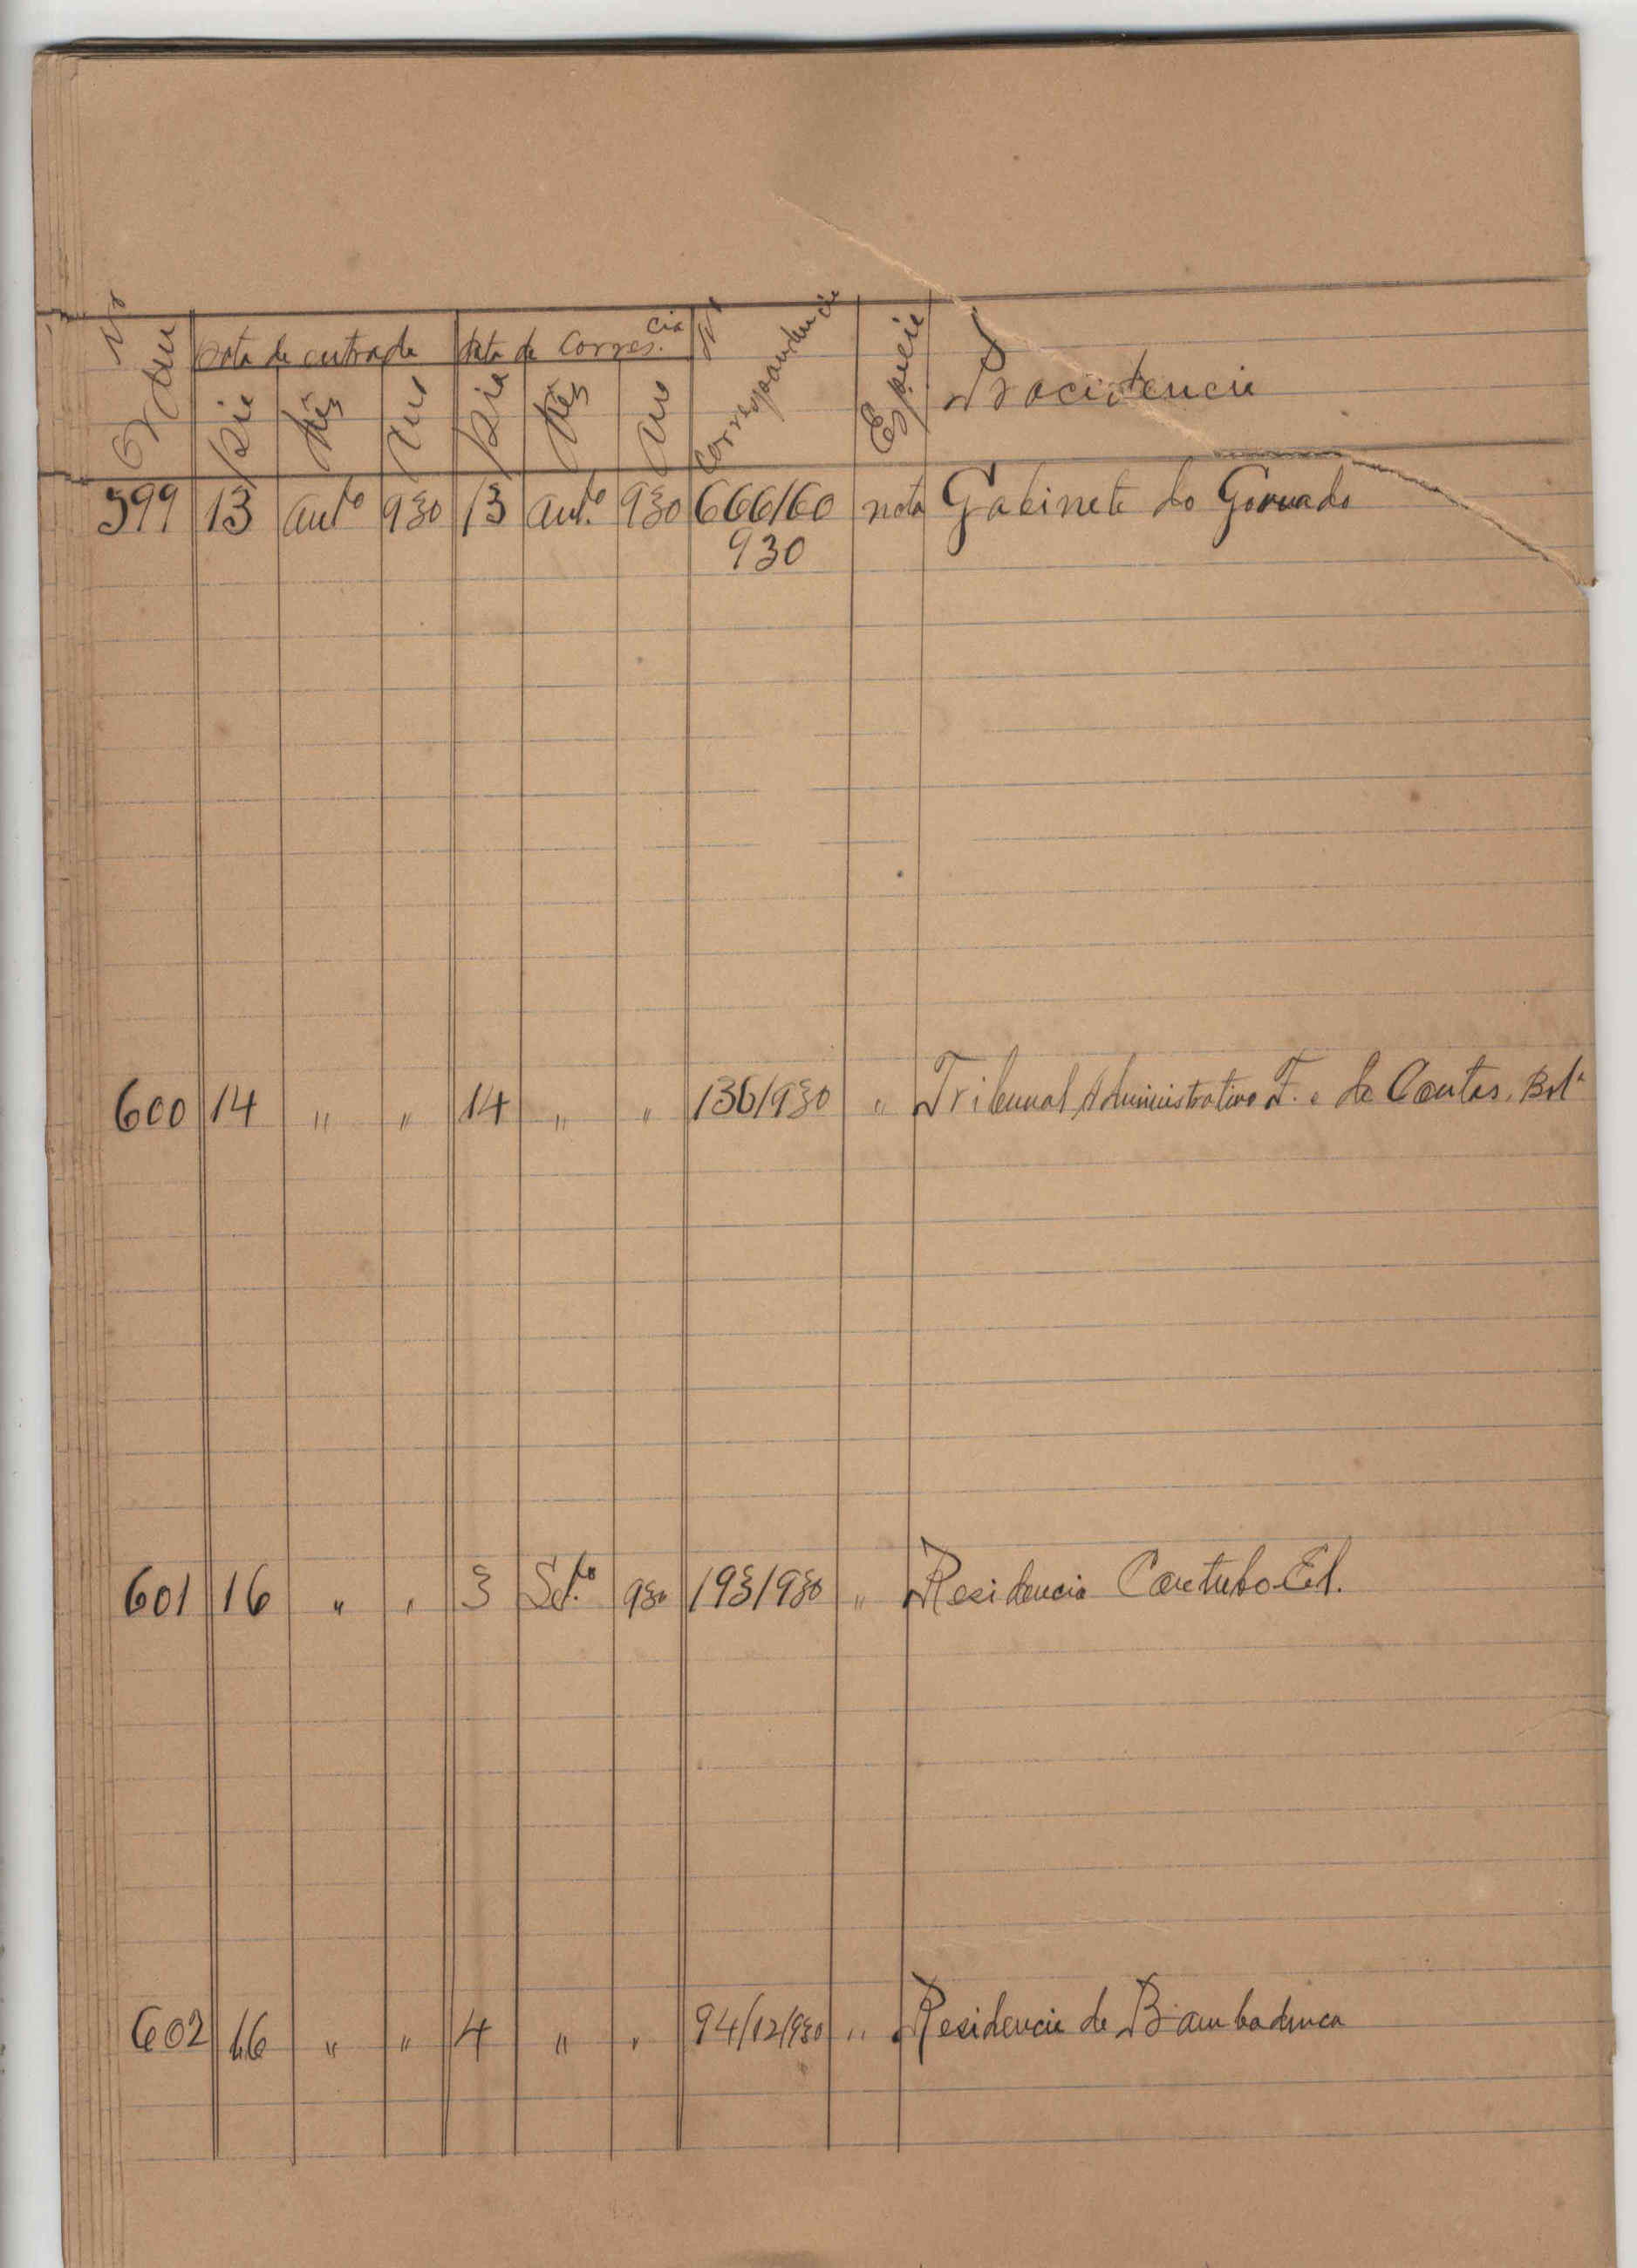 Nº Ordem Data de entrada Data de Corres.cia Nº Correspondencia Especie Procidencia
Dia Mês Ano Dia Mês Ano
599 13 outº 930 13 outº 930 666/60 nota Gabinete do Governo
930
600 14 " " 14 " " 136/930 " Tribunal Administrativo F. e de Contas. Bolª
601 16 " " 3 Setº 930 193/930 " Residencia
602 16 " " 4 " " 94/12/930 " Residencia de Bambadinca